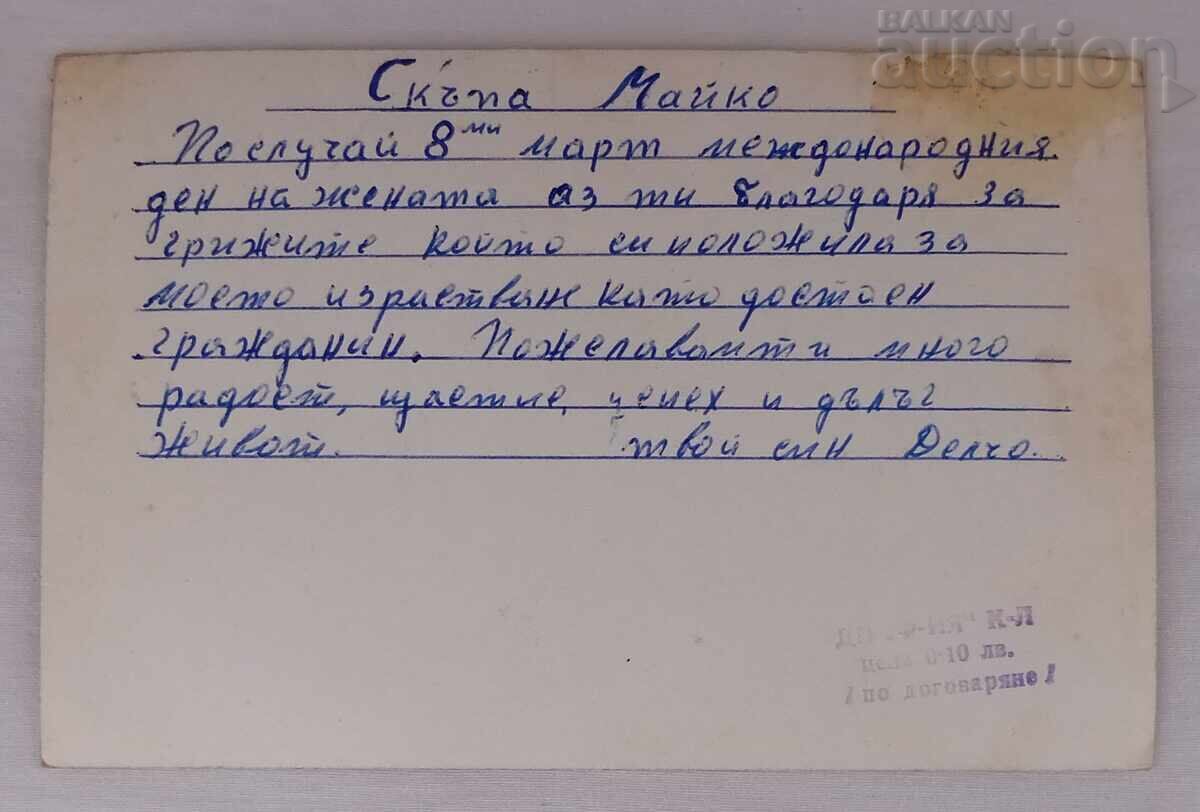 BALKAN
auction
Скъпа Майко
Послучай 8ми март международния
ден на жената аз ти благодаря за
грижите който си положила за
моето израстван като достоен
гражданин. Пожелавамти много
радост, щастие, успех и дълъг
живот. твой син Делчо.
К-Л
цена 0·10 лв.
/по договаряне/